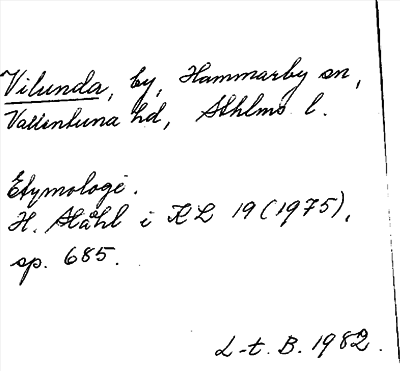 Vilunda, by, Hammarby sn,
Vallentuna hd, Sthlms l.
Etymologi.
H. Ståhl i KL 19 (1975),
sp. 685.
L-t. B. 1982.